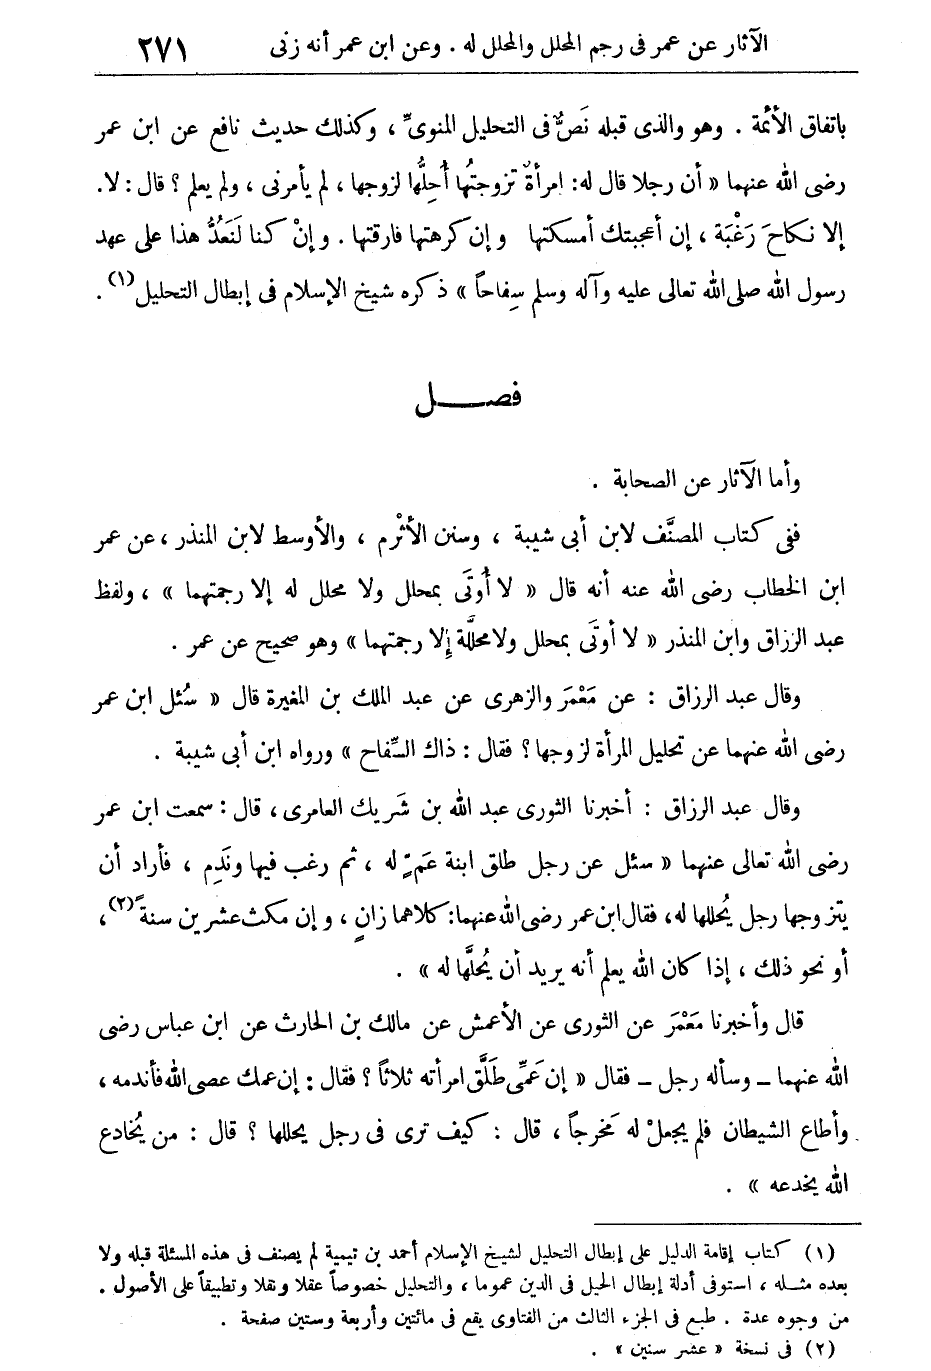 الآثار عن عمر فى رجم المحلل والمحلل له . وعن ابن عمر أنه زنى ٢٧١
باتفاق الأئمة . وهو والذى قبله نَصٌّ فى التحليل المنوىِّ ، وكذلك حديث نافع عن ابن عمر
رضى الله عنهما « أن رجلا قال له: امرأةٌ تزوجتُها أُحِلُّها لزوجها ، لم يأمرنى ، ولم يعلم ؟ قال : لا.
إلا نكاحَ رَغْبَة ، إن أعجبتك أمسكتها وإن كرهتها فارقتها . وإنْ كنا لَنَعُدُّ هذا على عهد
رسول الله صلى الله تعالى عليه وآله وسلم سِفاحاً » ذكره شيخ الإسلام فى إبطال التحليل (١) .
فصــــل
وأما الآثار عن الصحابة .
ففى كتاب المصنَّف لابن أبى شيبة ، وسنن الأثْرم ، والأوسط لابن المنذر ، عن عمر
ابن الخطاب رضى الله عنه أنه قال « لا أُوتَى بمحلل ولا محلل له إلا رجمتهما » ، ولفظ
عبد الرزاق وابن المنذر « لا أوتَى بمحلل ولا محلَّلة إلا رجمتهما » وهو صحيح عن عمر .
وقال عبد الرزاق : عن مَعْمَرَ والزهرى عن عبد الملك بن المغيرة قال « سُئل ابن عمر
رضى الله عنهما عن تحليل المرأة لزوجها ؟ فقال : ذاك السِّفاح » ورواه ابن أبى شيبة .
وقال عبد الرزاق : أخبرنا الثورى عبد الله بن شَريك العامرى ، قال : سمعت ابن عمر
رضى الله تعالى عنهما « سئل عن رجل طلق ابنة عَمٍّ له ، ثم رغب فيها ونَدِم ، فأراد أن
يتزوجها رجل يُحللها له، فقال ابن عمر رضى الله عنهما: كلاهما زانٍ ، وإن مكث عشرين سنةً (٢) ،
أو نحو ذلك ، إذا كان الله يعلم أنه يريد أن يُحلَّها له » .
قال وأخبرنا مَعْمَرَ عن الثورى عن الأعمش عن مالك بن الحارث عن ابن عباس رضى
الله عنهما ــ وسأله رجل ــ فقال « إن عَمِّى طَلَّق امرأته ثلاثاً ؟ فقال : إن عمك عصى الله فأندمه ،
وأطاع الشيطان فلم يجعلْ له مَخرجاً ، قال : كيف ترى فى رجل يحللها ؟ قال : من يُخادع
الله يخدعه » .
(١) كتاب إقامة الدليل على إبطال التحليل لشيخ الإسلام أحمد بن تيمية لم يصنف فى هذه المسئلة قبله ولا
بعده مثله ، استوفى أدلة إبطال الحيل فى الدين عموما ، والتحليل خصوصاً عقلا ونقلا وتطبيقاً على الأصول .
من وجوه عدة . طبع فى الجزء الثالث من الفتاوى يقع فى مائتين وأربعة وستين صفحة .
(٢) فى نسخة « عشر سنين » .